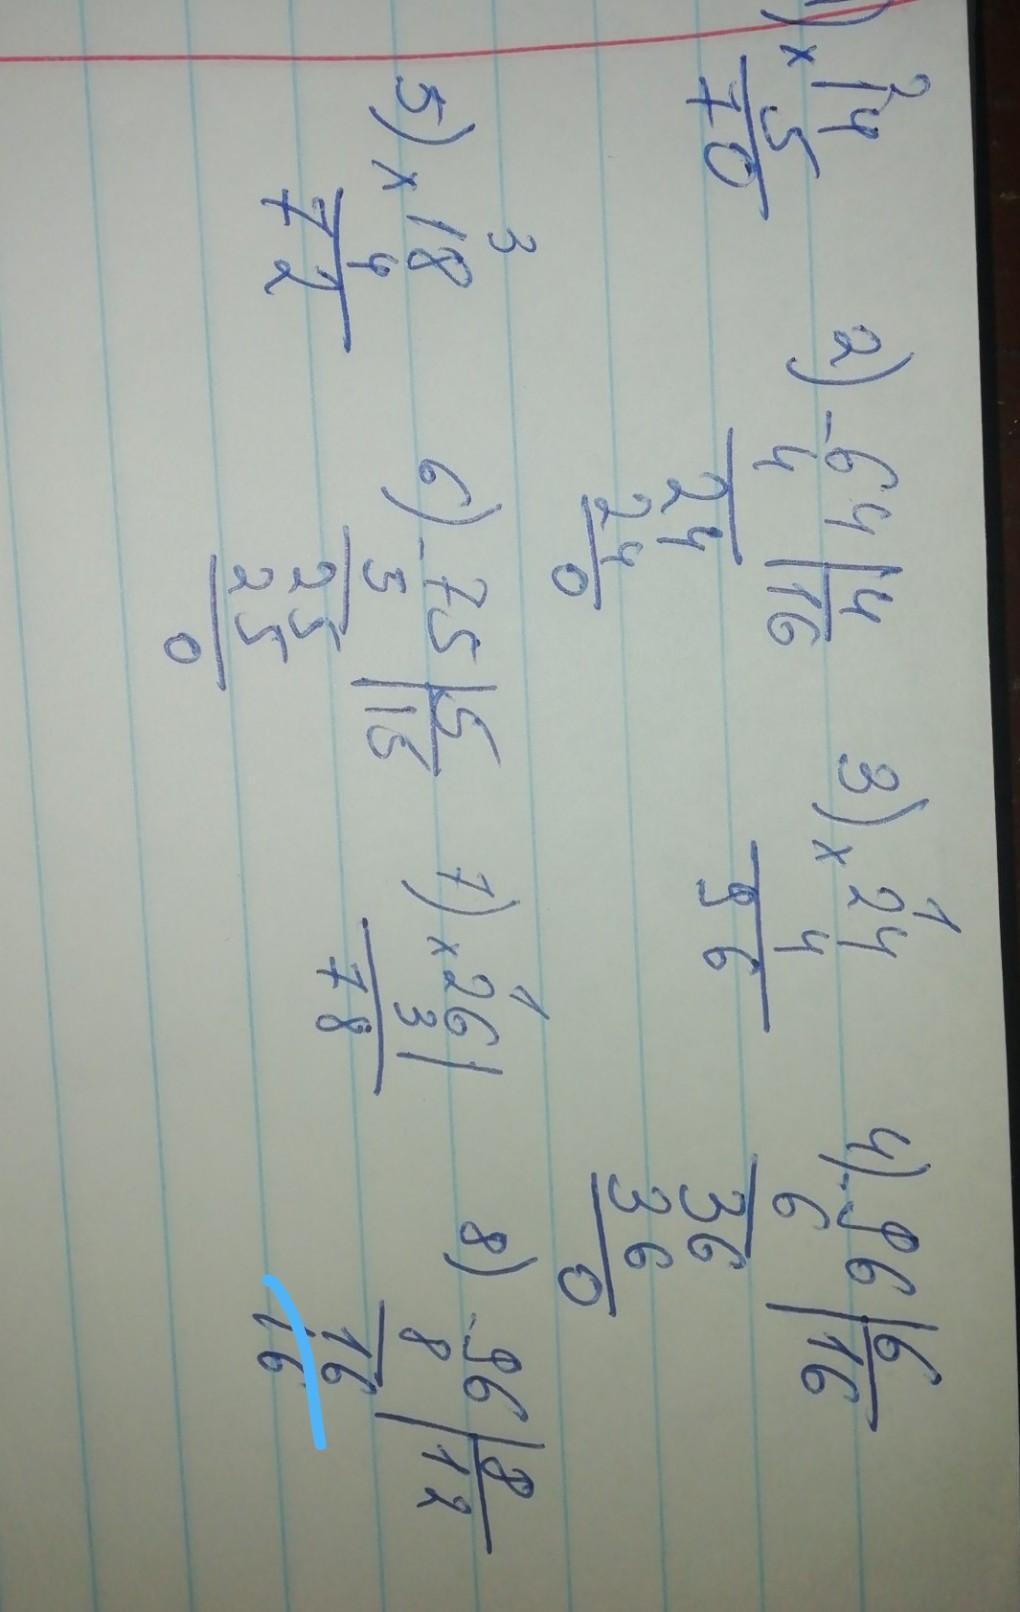 1) × 14 2) - 64 | 4 3) × 24 4) - 96 | 6
2 1
5 4 | 16 4 6 | 16
70 24 96 36
24 36
0 0
5) × 18 6) - 75 | 5 7) × 26 | 8) - 96 | 8
3 1
4 5 | 15 3 8 | 12
72 25 78 16
25 16
0